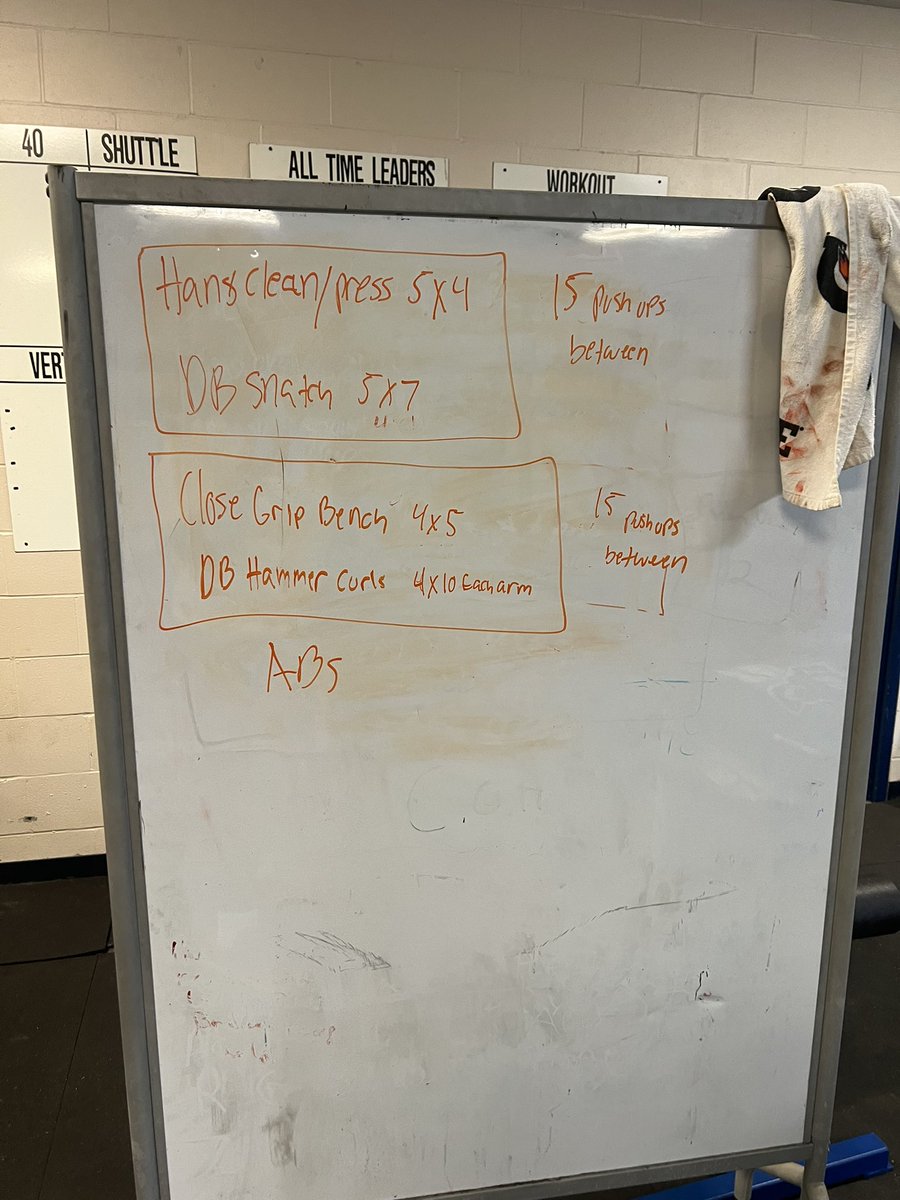 40 SHUTTLE
ALL TIME LEADERS
WORKOUT
VERT
Hang Clean/press 5x4
15 pushups
between
DB Snatch 5x7
Close Grip Bench 4x5
15 pushups
between
DB Hammer Curls 4x10 Each arm
ABs
E